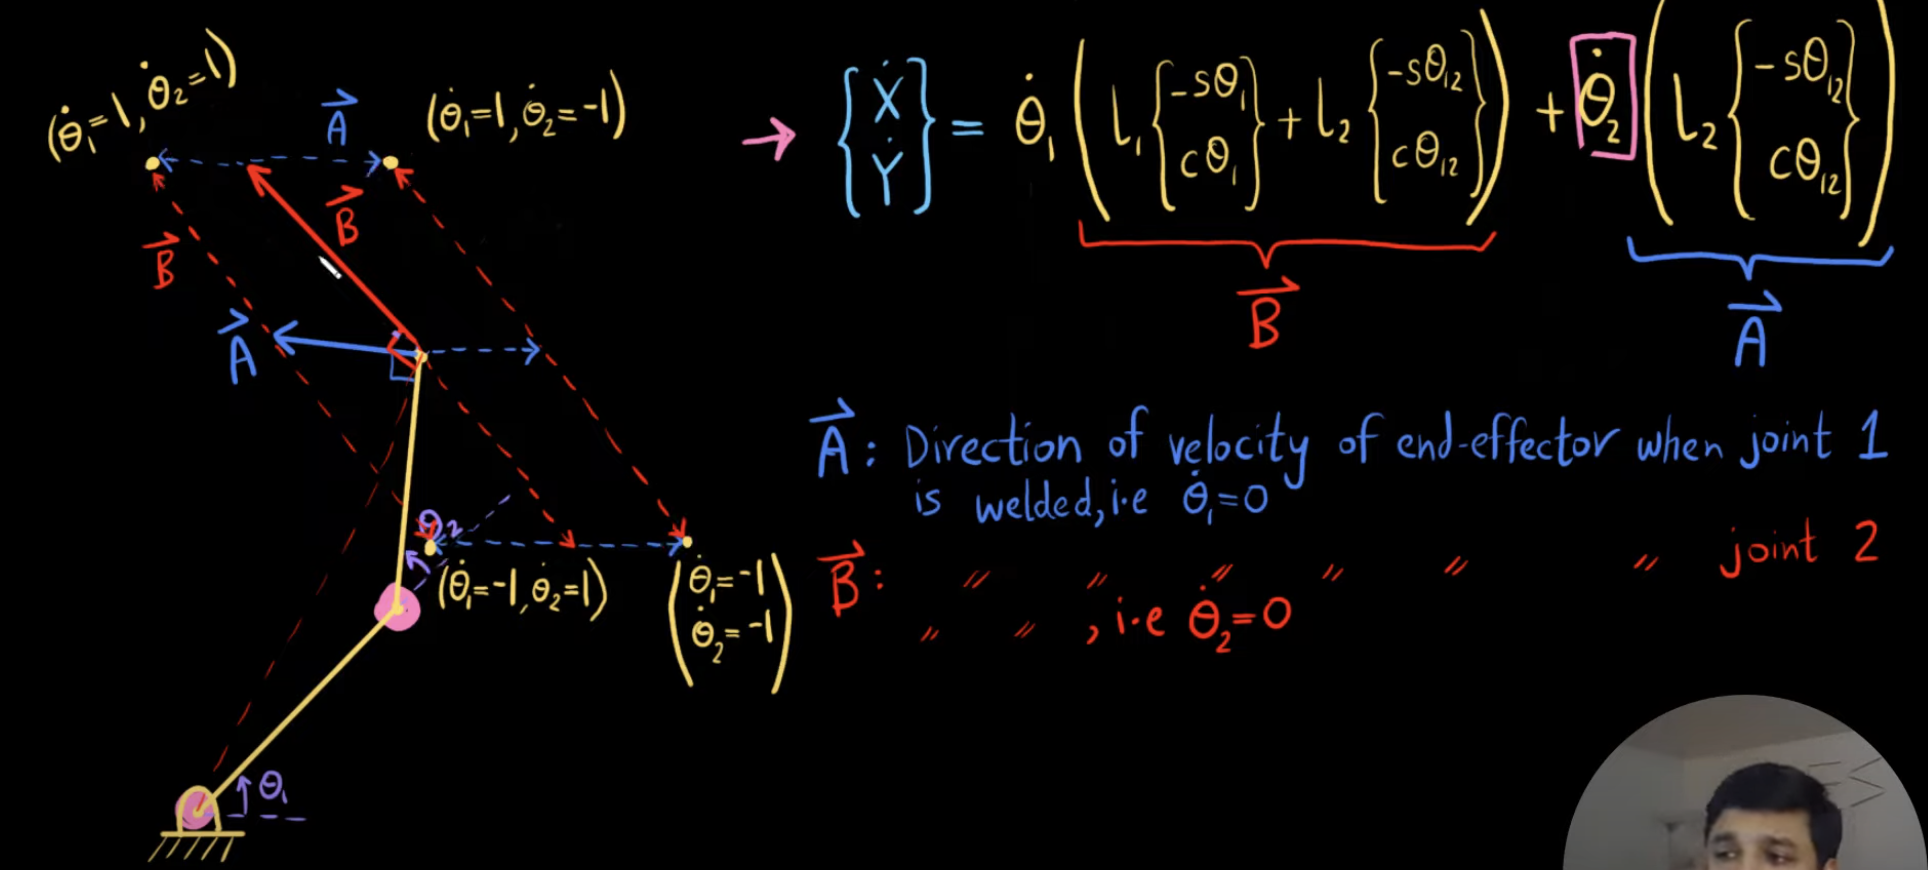 (θ̇₁=1, θ̇₂=1)
A⃗
(θ̇₁=1, θ̇₂=-1)
B⃗
B⃗
A⃗
θ₂
(θ̇₁=-1, θ̇₂=1)
(θ̇₁=-1
θ̇₂=-1)
θ₁
→ {Ẋ Ẏ} = θ̇₁ (L₁ {-sθ₁ cθ₁} + L₂ {-sθ₁₂ cθ₁₂}) + θ̇₂ (L₂ {-sθ₁₂ cθ₁₂})
B⃗
A⃗
A⃗ : Direction of velocity of end-effector when joint 1
is welded, i.e θ̇₁=0
B⃗ : " " " " " " joint 2
" " , i.e θ̇₂=0